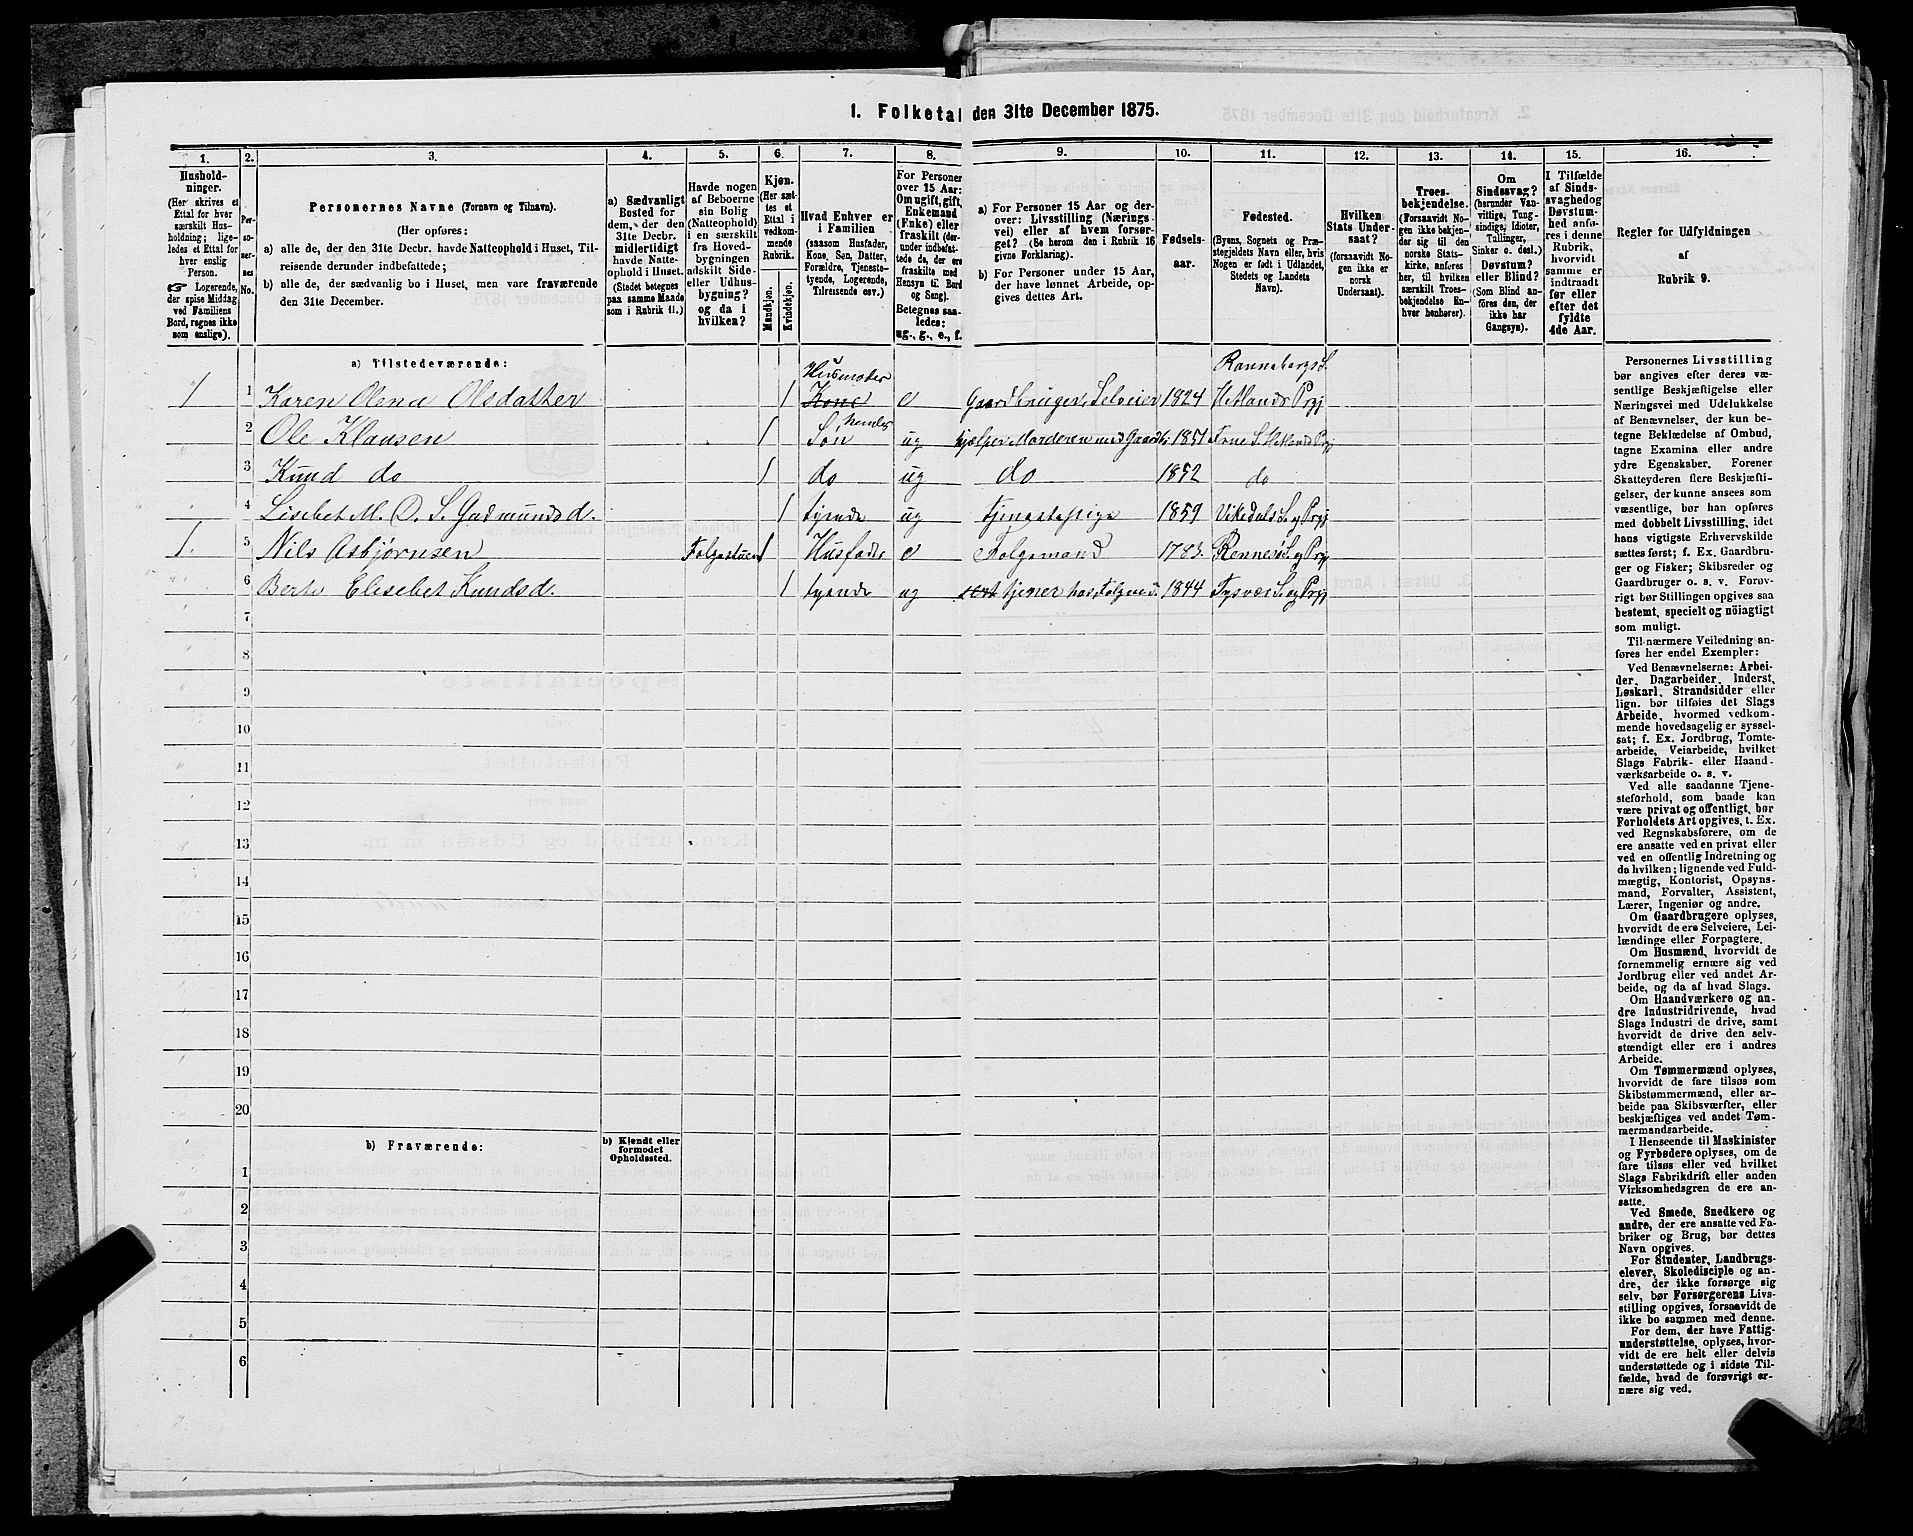 1. Folketal den 31te December 1875.
1.
Hushold-
ninger.
(Her skrives et
Ettal for hver
særskilt Hus-
holdning; lige-
ledes et Ettal for
hver enslig
Person.
☞ Logerende,
der spise Middag
ved Familiens
Bord, regnes ikke
som enslige).
2.
Per-
so-
ner-
nes
No.
3.
Personernes Navne (Fornavn og Tilnavn).
(Her opføres:
a) alle de, der den 31te Decbr. havde Natteophold i Huset, Til-
reisende derunder indbefattede;
b) alle de, der sædvanlig bo i Huset, men vare fraværende
den 31te December.
4.
a) Sædvanligt
Bosted for
dem, der den
31te Decbr.
midlertidigt
havde Natte-
ophold i Huset.
(Stedet betegnes
paa samme Maade
som i Rubrik 11.)
5.
Havde nogen
af Beboerne
sin Bolig
(Natteophold)
i en særskilt
fra Hoved-
bygningen
adskilt Side-
eller Udhus-
bygning?
og da i
hvilken?
6.
Kjøn.
(Her sæt-
tes et
Ettal i
vedkom-
mende
Rubrik.
Mandkjøn.
Kvindekjøn.
7.
Hvad Enhver er
i Familien
(saasom Husfader,
Kone, Søn, Datter,
Forældre, Tjeneste-
tyende, Logerende,
Tilreisende osv.)
8.
For Personer
over 15 Aar:
Om ugift, gift,
Enkemand
(Enke) eller
fraskilt (der-
under indbefat-
tede de, der ere
fraskilte med
Hensyn til Bord
og Seng).
Betegnes saa-
ledes:
ug., g., e., f.
9.
a) For Personer 15 Aar og der-
over: Livsstilling (Nærings-
vei) eller af hvem forsør-
get? (Se herom den i Rubrik 16
givne Forklaring).
b) For Personer under 15 Aar,
der have lønnet Arbeide, op-
gives dettes Art.
10.
Fødsels-
aar.
11.
Fødested.
(Byens, Sognets og Præ-
stegjeldets Navn eller, hvis
Nogen er født i Udlandet,
Stedets og Landets
Navn).
12.
Hvilken
Stats Under-
saat?
(forsaavidt No-
gen ikke er
norsk
Undersaat).
13.
Troes-
bekjendelse.
(Forsaavidt No-
gen ikke bekjen-
der sig til den
norske Stats-
kirke, anføres
her, til hvilken
særskilt Troes-
bekjendelse En-
hver henhører).
14.
Om
Sindssvag?
(herunder Van-
vittige, Tung-
sindige, Idioter,
Tullinger,
Sinker o. desl.)
Døvstum?
eller Blind?
(Som Blind an-
føres den, der
ikke har
Gangsyn).
15.
I Tilfælde
af Sinds-
svaghed og
Døvstum-
hed anfø-
res i denne
Rubrik,
hvorvidt
samme er
indtraadt
før eller
efter det
fyldte
4de Aar.
16.
Regler for Udfyldningen
af
Rubrik 9.
a) Tilstedeværende:
1 1 Karen Olena Olsdatter 1 Kone Husmoder e Gaardbruger, Selveier 1824 Rannebergs S. Hetlands Prgj
2 Ole Klausen 1 Søn hendes ug hjælper Moderen med Gaardbr. 1851 S. Hetlands Prgj
3 Knud do 1 do ug do 1852 do
4 Lisebet M. O. S. Gudmundsd. 1 tyende ug tjenestepige 1859 Vikedals S. og Prgj
1. 5 Nils Asbjørnsen Folgestuen 1 Husfader e Folgemand 1783. Rennesø S. og Prgj
6 Berte Elisebet Knudsd. 1 tyende ug tjener hos Folgem. 1844 Tysvær S. og Prgj
7
8
9
10
11
12
13
14
15
16
17
18
19
20
b) Fraværende:
b) Kjendt eller
formodet
Opholdssted.
1
2
3
4
5
6
Personernes Livsstilling
bør angives efter deres væ-
sentlige Beskjæftigelse eller
Næringsvei med Udelukkelse
af Benævnelser, der kun be-
tegne Beklædelse af Ombud,
tagne Examina eller andre
ydre Egenskaber. Forener
Skatteyderen flere Beskjæfti-
gelser, der kunne ansees som
væsentlige, bør han opføres
med dobbelt Livsstilling, idet
hans vigtigste Erhvervskilde
sættes først; f. Ex. Gaardbru-
ger og Fisker; Skibsreder og
Gaardbruger o. s. v. Forøv-
rigt bør Stillingen opgives saa
bestemt, specielt og nøiagtigt
som muligt.
Til nærmere Veiledning an-
føres her endel Exempler:
Ved Benævnelserne: Arbei-
der, Dagarbeider, Inderst,
Løskarl, Strandsidder eller
lign. bør tilføies det Slags
Arbeide, hvormed vedkom-
mende hovedsagelig er syssel-
sat; f. Ex. Jordbrug, Tomte-
arbeide, Veiarbeide, hvilket
Slags Fabrik- eller Haand-
værksarbeide o. s. v.
Ved alle saadanne Tjene-
steforhold, som baade kan
være privat og offentligt, bør
Forholdets Art opgives, t. Ex.
ved Regnskabsførere, om de
ere ansatte ved en privat eller
ved en offentlig Indretning og
da hvilken; lignende ved Fuld-
mægtig, Kontorist, Opsyns-
mand, Forvalter, Assistent,
Lærer, Ingeniør og andre.
Om Gaardbrugere oplyses,
hvorvidt de ere Selveiere, Lei-
lændinge eller Forpagtere.
Om Husmænd, hvorvidt de
fornemmelig ernære sig ved
Jordbrug eller ved andet Ar-
beide, og da af hvad Slags.
Om Haandværkere og an-
dre Industridrivende, hvad
Slags Industri de drive, samt
hvorvidt de drive den selv-
stændigt eller ere i andres
Arbeide.
Om Tømmermænd oplyses,
hvorvidt de fare tilsøs som
Skibstømmermænd, eller ar-
beide paa Skibsværfter, eller
beskjæftiges ved andet Tøm-
mermandsarbeide.
I Henseende til Maskinister
og Fyrbødere oplyses, om de
fare tilsøs eller ved hvilket
Slags Fabrikdrift eller anden
Virksomhedsgren de ere an-
satte.
Ved Smede, Snedkere og
andre, der ere ansatte ved Fa-
briker og Brug, bør dettes
Navn opgives.
For Studenter, Landbrugs-
elever, Skoledisciple og an-
dre, der ikke forsørge sig
selv, bør Forsørgerens Livs-
stilling opgives, forsaavidt de
ikke bo sammen med denne.
For dem, der have Fattig-
understøttelse, oplyses, hvor-
vidt de ere helt eller delvis
understøttede og i sidste Til-
fælde, hvad de forøvrigt er-
nære sig ved.